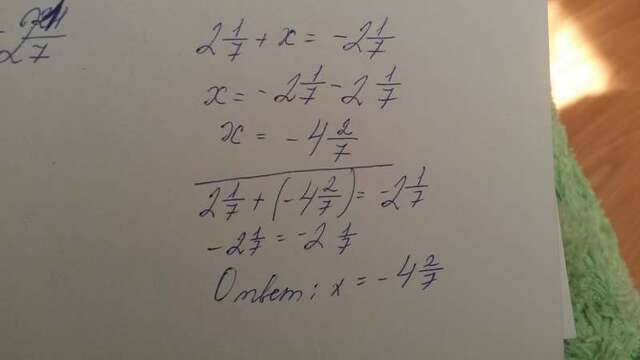 2 1/7 + x = -2 1/7
x = -2 1/7 - 2 1/7
x = -4 2/7
2 1/7 + (-4 2/7) = -2 1/7
-2 1/7 = -2 1/7
Ответ: x = -4 2/7